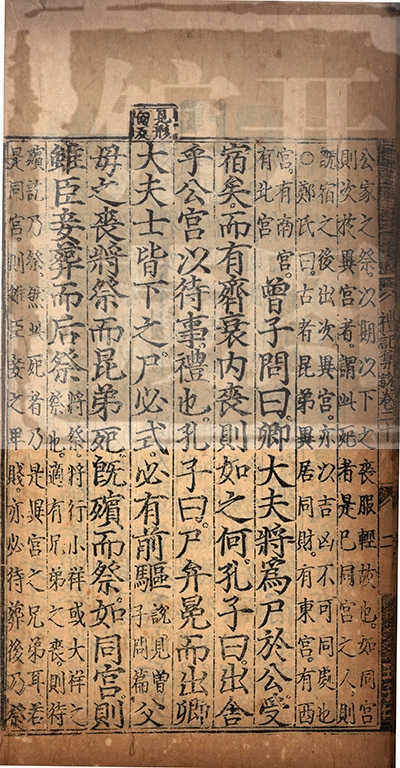 禮記集說卷
二
公家之祭。以期以下之喪服輕故也。如同宮
則次於異宮者。謂此死者是已同宮之人。則
既宿之後。出次異宮。亦以吉凶不可同處也
○鄭氏曰。古者昆弟異居同財。有東宮。有西
宮。有南宮。
有北宮
曾子問曰。卿大夫將爲尸於公。受
宿矣。而有齊衰內喪。則如之何。孔子曰。出舍
乎公宮以待事。禮也。孔子曰。尸弁冕而出。卿
見形
甸反
大夫士皆下之。尸必式。必有前驅
說見曾
子問篇
父
母之喪。將祭而昆弟死。既殯而祭。如同宮。則
雖臣妾。葬而后祭
將祭。將行小祥或大祥之
祭也。適有兄弟之喪。則待
殯訖乃祭。然此死者乃是異宮之兄弟耳。若
是同宮。則雖臣妾之卑賤。亦必待葬後乃祭